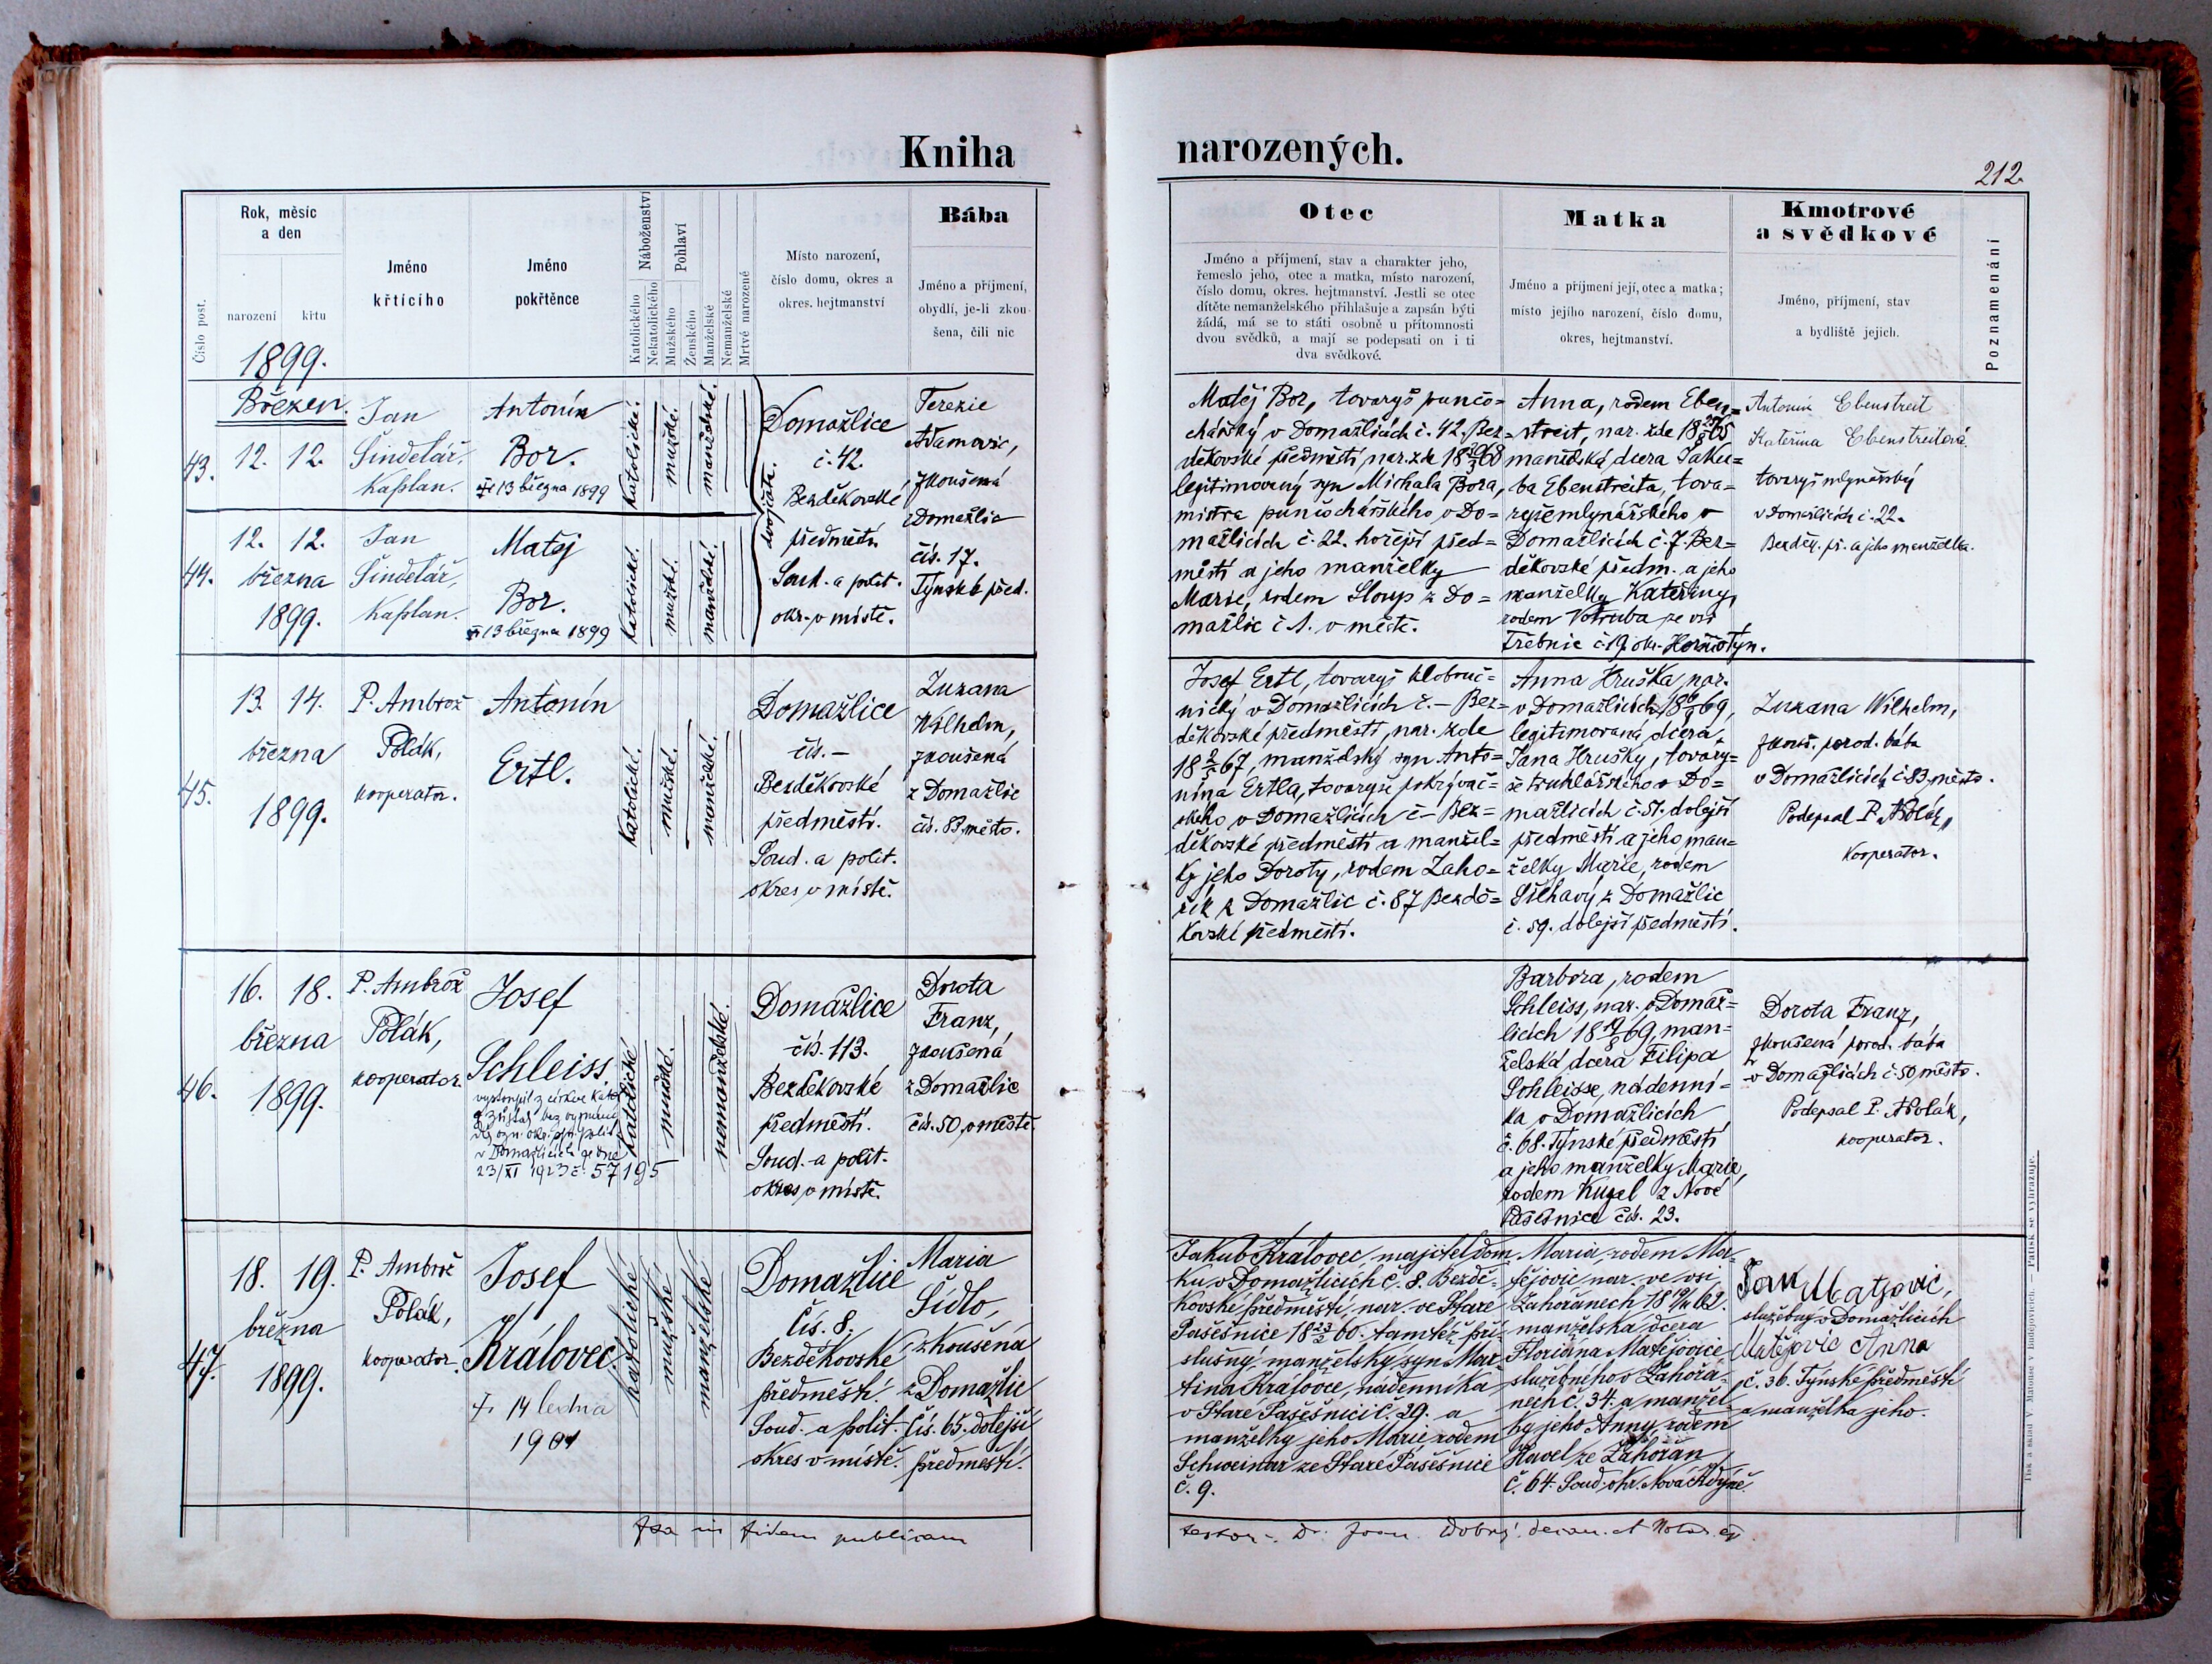 Kniha
narozených.
212.
Číslo post.
Rok, měsíc
a den
narození
křtu
1899.
Jméno
křtícího
Jméno
pokřtěnce
Náboženství
Katolického
Nekatolického
Pohlaví
Mužského
Ženského
Manželské
Nemanželské
Mrtvě narozené
Místo narození,
číslo domu, okres a
okres. hejtmanství
Bába
Jméno a příjmení,
obydlí, je-li zkou-
šena, čili nic
Otec
Jméno a příjmení, stav a charakter jeho,
řemeslo jeho, otec a matka, místo narození,
číslo domu, okres. hejtmanství. Jestli se otec
dítěte nemanželského přihlašuje a zapsán býti
žádá, má se to státi osobně u přítomnosti
dvou svědků, a mají se podepsati on i ti
dva svědkové.
Matka
Jméno a příjmení její, otec a matka;
místo jejího narození, číslo domu,
okres, hejtmanství.
Kmotrové
a svědkové
Jméno, příjmení, stav
a bydliště jejich.
Poznamenání
Březen.
43.
12. 12.
Jan
Šindelář,
Kaplan.
Antonín
Bor.
13 března 1899
katolické.
mužské.
manželské.
dvojčata.
Domažlice
č. 42.
Bezděkovské
předměstí
Soud. a polit.
okr. v místě.
Terezie
Adamovic,
zkoušená
z Domažlic
čís. 17.
Týnské před.
Matěj Bor, tovaryš punčo=
chářský v Domažlicích č. 42. Bez=
děkovské předměstí nar. zde 18 20/3 68
legitimovaný syn Michala Bora,
mistra punčochářského v Do=
mažlicích č. 22. hořejší před=
městí a jeho manželky
Marie, rodem Sloup z Do=
mažlic č 1. v městě.
Anna, rodem Eben=
streit, nar. zde 18 65,
manželská dcera Jaku=
ba Ebenstreita, tova=
ryše mlynářského v
Domažlicích č. 7 Bez=
děkovské předm. a jeho
manželky Kateřiny,
rodem Votruba ze vsi
Třebnic č. 19 okr. Horš. Týn.
Antonín Ebenstreit
Kateřina Ebenstreitová
tovaryš mlynářský
v Domažlicích č. 22.
Bezděk. př. a jeho manželka.
44.
12. 12.
března
1899.
Jan
Šindelář,
Kaplan.
Matěj
Bor.
13 března 1899
katolické.
mužské.
manželské.
45.
13. 14.
března
1899.
P. Ambrož
Polák,
kooperator.
Antonín
Ertl.
katolické.
mužské.
manželské.
Domažlice
čís. —
Bezděkovské
předměstí.
Soud. a polit.
okres v místě.
Zuzana
Wilhelm,
zkoušená
z Domažlic
čís. 83, město.
Josef Ertl, tovaryš klobouč=
nický v Domažlicích č. — Bez=
děkovské předměstí, nar. zde
18 2/5 67, manželský syn Anto=
nína Ertla, tovaryše pokrývač=
ského v Domažlicích č — Bez=
děkovské předměstí a manžel=
ky jeho Doroty, rodem Zaho=
řík z Domažlic č. 87 Bezdě=
kovské předměstí.
Anna Hruška, nar.
v Domažlicích 18 69,
legitimovaná dcera
Jana Hrušky, tovary=
še truhlářského v Do=
mažlicích č. 51. dolejší
předměstí a jeho man=
želky Marie, rodem
Štěhavý z Domažlic
č. 59. dolejší předměstí.
Zuzana Wilhelm,
zkouš. porod. bába
v Domažlicích č. 83, město.
Podepsal P. A Polák,
kooperator.
46.
16. 18.
března
1899.
P. Ambrož
Polák,
kooperator.
Josef
Schleiss.
vystoupil z církve kato.
a zůstal bez vyznání
dle ozn. okr. spr. polit.
v Domažlicích ze dne
23/XI 1923 č. 57195
katolické
mužské.
nemanželské.
Domažlice
čís. 113.
Bezděkovské
předměstí.
Soud. a polit.
okres v místě.
Dorota
Franz,
zkoušená
z Domažlic
čís. 50, v městě.
Barbora, rodem
Schleiss, nar. v Domaž=
licích 18 19/8 69, man=
želská dcera Filipa
Schleisse, nádenní=
ka v Domažlicích
č. 68. Týnské předměstí
a jeho manželky Marie,
rodem Kuzel z Nové
Pasečnice čís. 23.
Dorota Franz,
zkoušená porod. bába
v Domažlicích č. 50 město.
Podepsal P. A Polák,
kooperator.
47.
18. 19.
března
1899.
P. Ambrož
Polák,
kooperator.
Josef
Královec.
† 14 ledna
1901
katolické
mužské
manželské
Domažlice
čís. 8.
Bezděkovské
předměstí.
Soud. a polit.
okres v místě.
Maria
Šídlo,
zkoušená
z Domažlic
čís. 65. dolejší
předměstí.
Jakub Královec, majitel dom
ku v Domažlicích č. 8. Bezdě-
kovské předměstí, nar. ve Staré
Pašešnice 18 23/2 60. tamtéž pří-
slušný, manželský syn Mar-
tina Královce, nádenníka
v Staré Pašešnici č. 29. a
manželky jeho Marie rodem
Schweinar ze Staré Pašešnice
č. 9.
Maria, rodem Ma-
tějovic nar. ve vsi
Zahořanech 18 62.
manželská dcera
Floriána Matějovice
služebného v Zahořa-
nech č. 34. a manžel-
ky jeho Anny, rodem
Havel ze Zahořan
č. 64. Soud. okr. Nová Kdyně.
Jan Matějovic,
služebný v Domažlicích
Matějovic Anna
č. 36. Týnské předměstí
a manželka jeho.
in fidem publicam
testor. Dr. Joan. Dobrý decan. et Notar. ep.
Tisk a sklad V. Matouše v Budějovicích. — Patisk se vyhražuje.